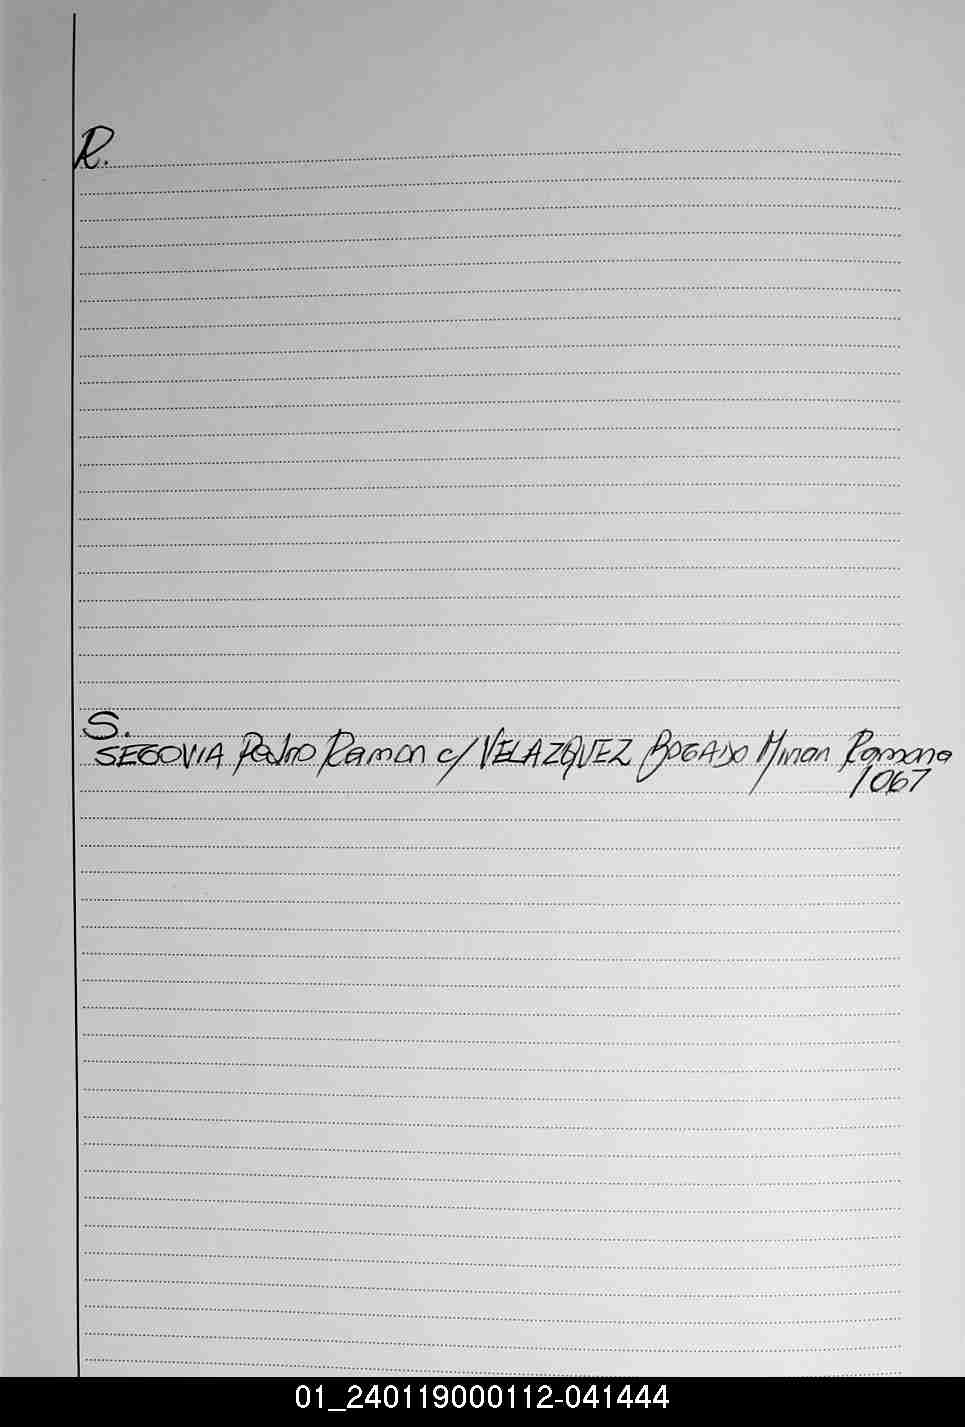 R.
S.
SEGOVIA Pedro Ramon c/ VELAZQUEZ BOGADO Mirian Ramona
1067
01_240119000112-041444